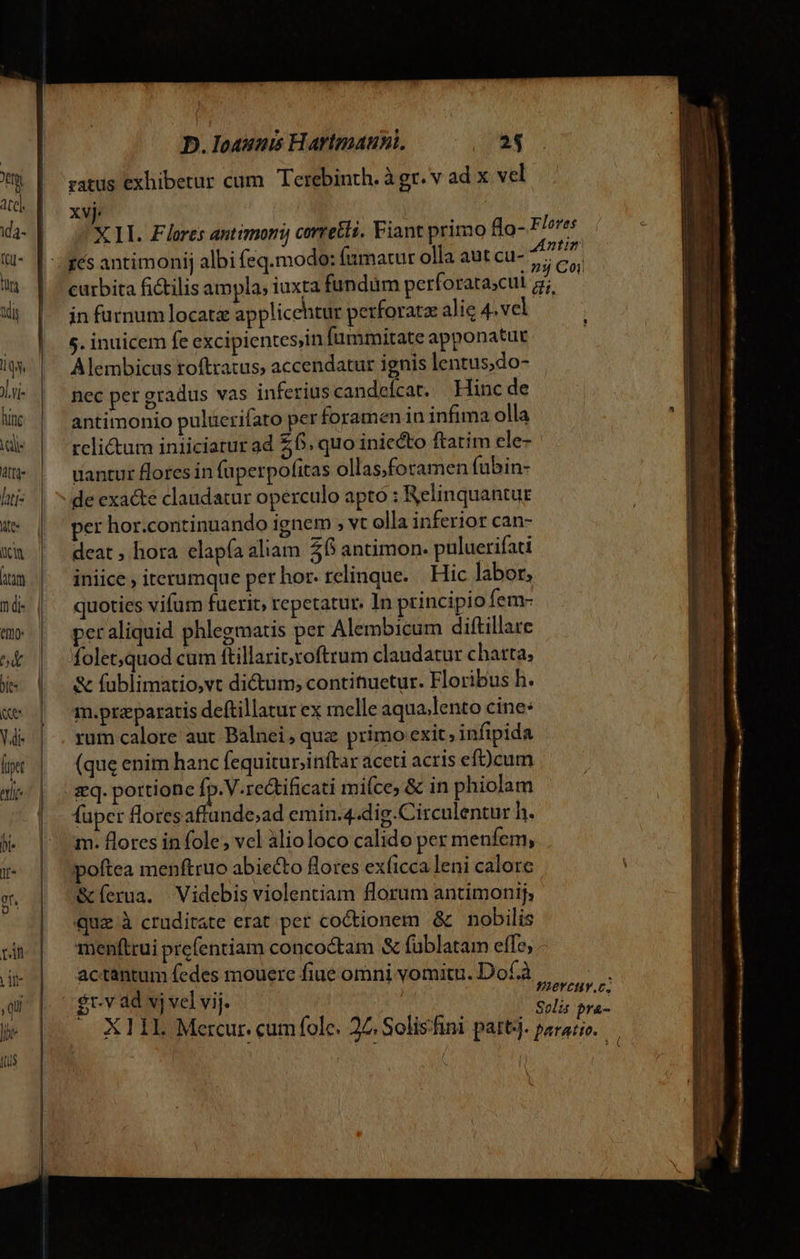 D. Ioannis Hartmanni. 25
ratus exhibetur cum Terebinth. à gr. v ad x vel
xvj.
XII. Flores antimonij correcti. Fiant primo flo-
res antimonij albi seq. modo: sumatur olla aut cu-
curbita fictilis ampla, iuxta fundum perforata, cui
in furnum locatæ applicentur perforatæ aliæ 4. vel
5. inuicem se excipientes, in summitate apponatur
Alembicus rostratus, accendatur ignis lentus, do-
nec per gradus vas inferius candescat. Hinc de
antimonio puluerisato per foramen in infima olla
relictum iniiciatur ad ℥ß. quo iniecto statim ele-
uantur flores in superpositas ollas, foramen subin-
de exacte claudatur operculo apto: Relinquantur
per hor. continuando ignem, vt olla inferior can-
deat, hora elapsa aliam ℥ß antimon. puluerisati
iniice, iterumque per hor. relinque. Hic labor,
quoties visum fuerit, repetatur. In principio sem-
per aliquid phlegmatis per Alembicum distillare
solet, quod cum stillarit, rostrum claudatur charta,
& sublimatio, vt dictum, continuetur. Floribus h.
m. præparatis destillatur ex melle aqua, lento cine-
rum calore aut Balnei, quæ primo exit, insipida
(quę enim hanc sequitur, instar aceti acris est) cum
æq. portione sp. V. rectificati misce, & in phiolam
super flores affunde, ad emin. 4. dig. Circulentur h.
m. flores in sole, vel alio loco calido per mensem,
postea menstruo abiecto flores exsicca leni calore
& serua. Videbis violentiam florum antimonij,
quæ à cruditate erat per coctionem & nobilis
menstrui presentiam concoctam & sublatam esse,
ac tantum sedes mouere siue omni vomitu. Dos. à
gr. v ad vj vel vij.
XIII. Mercur. cum sole. ♃. Solis fini part. j.
Flores
Antim
nij Cor
Mercur. c.
Solis præ-
paratio.